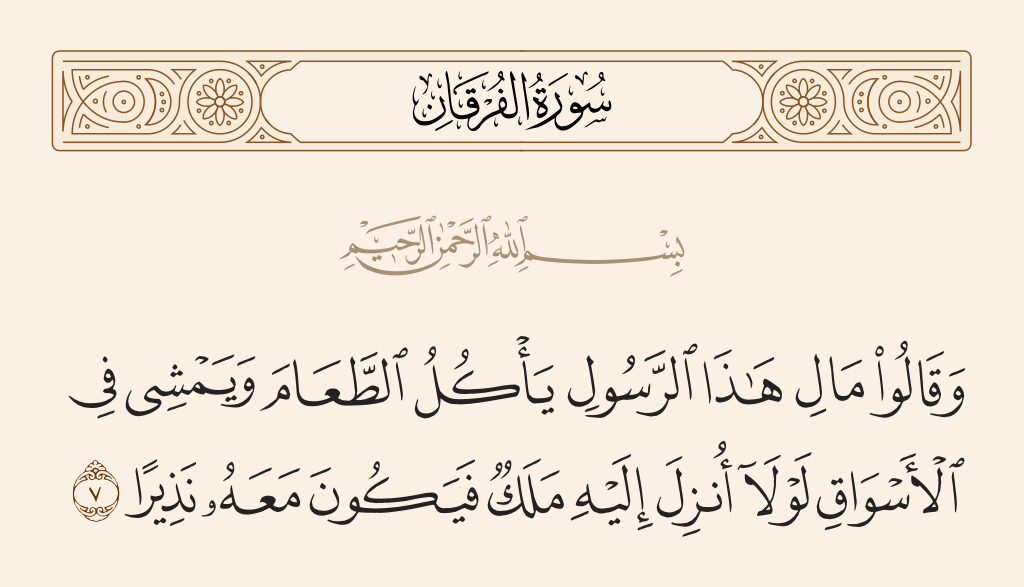 سُورَةُ الفُرْقَانِ
بِسْمِ ٱللَّهِ ٱلرَّحْمَٰنِ ٱلرَّحِيمِ
وَقَالُوا۟ مَالِ هَٰذَا ٱلرَّسُولِ يَأْكُلُ ٱلطَّعَامَ وَيَمْشِى فِى
ٱلْأَسْوَاقِ لَوْلَآ أُنزِلَ إِلَيْهِ مَلَكٌ فَيَكُونَ مَعَهُۥ نَذِيرًا ٧